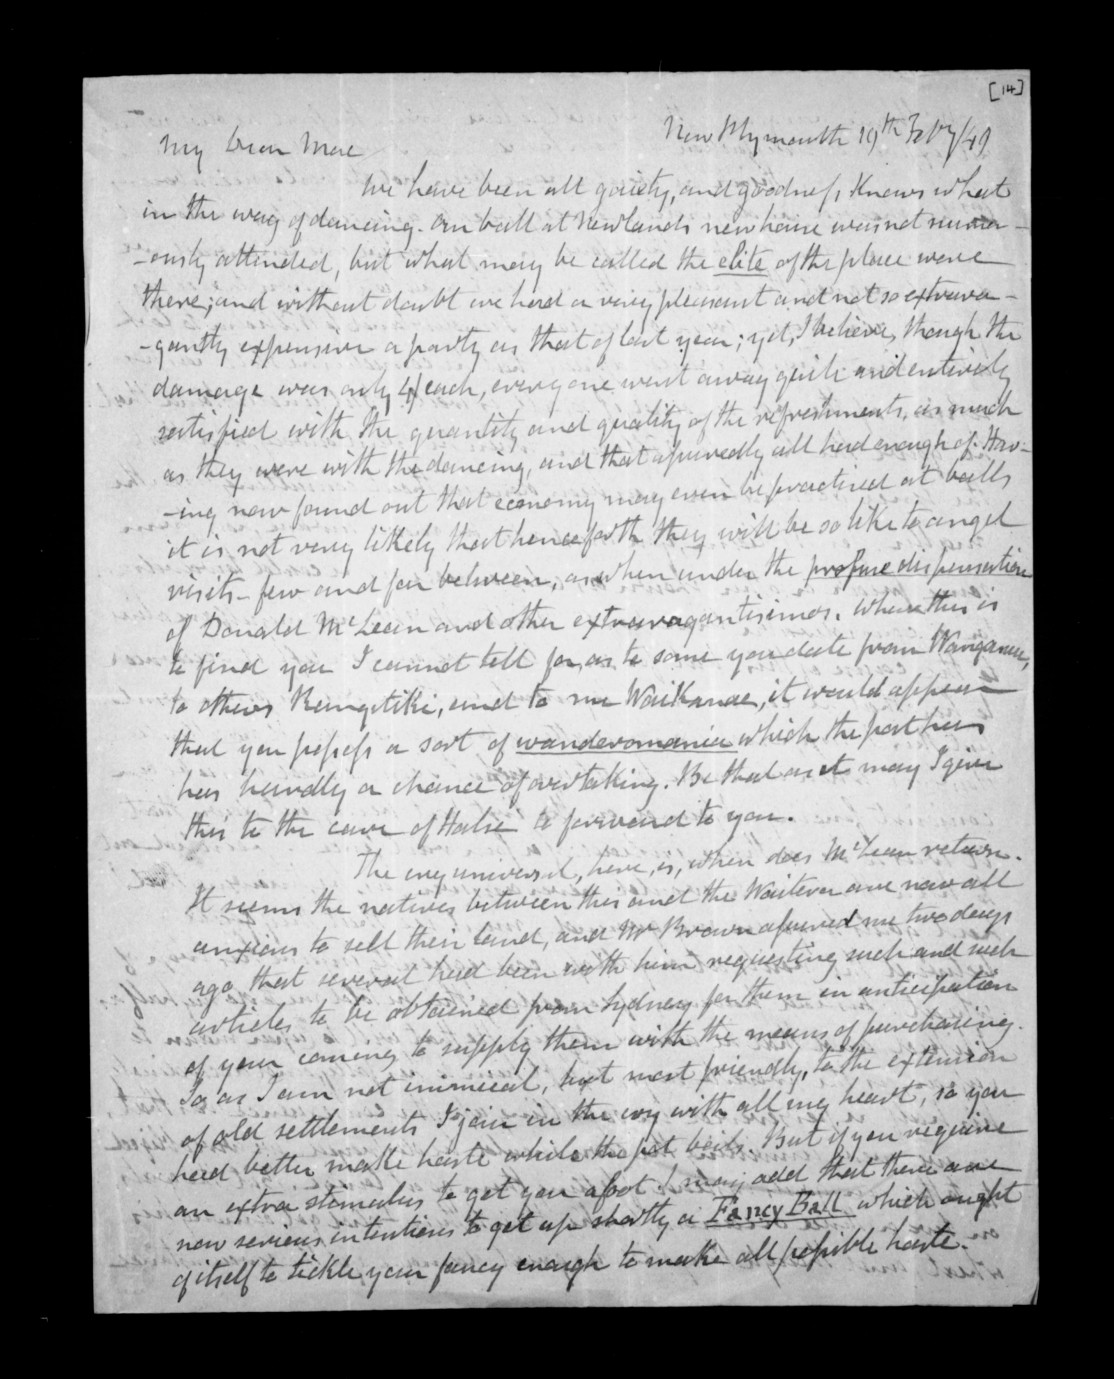 [14]
New Plymouth 19th Feby/49
My Dear Mac
We have been all gaiety, and goodness knows what
in the way of dancing. Our ball at Newlands new house was not numer-
-ously attended, but what may be called the elite of the place were
there; and without doubt we had a very pleasant and not so extrava-
-gantly expensive a party as that of last year; yet, I believe, though the
damage was only 4/ each, every one went away quite and entirely
satisfied with the quantity and quality of the refreshments, as much
as they were with the dancing, and that assuredly all had enough of. Hav-
-ing now found out that economy may even be practised at balls
it is not very likely that henceforth they will be so like to angel
visits - few and far between, as when under the profuse dispensation
of Donald McLean and other extravagantisimos. Where this is
to find you I cannot tell for, as to some you date from Wanganui,
to others Rangitiki, and to me WaiKanae, it would appear
that you possess a sort of wanderomania which the post has
has hardly a chance of overtaking. Be that as it may I give
this to the care of Halse to forward to you.
The cry universal, here, is, when does McLean return.
It seems the natives between this and the Waitera are now all
anxious to sell their land, and Mr Brown assured me two days
ago that several had been with him requesting such and such
articles to be obtained from Sydney for them in anticipation
of your coming to supply them with the means of purchasing.
So, as I am not inimical, but most friendly, to the extension
of old settlements I join in the cry with all my heart, so you
had better make haste while the pot boils. But if you require
an extra stimulus to get you afoot I may add that there are
now serious intentions to get up shortly a Fancy Ball which ought
of itself to tickle your fancy enough to make all possible haste.